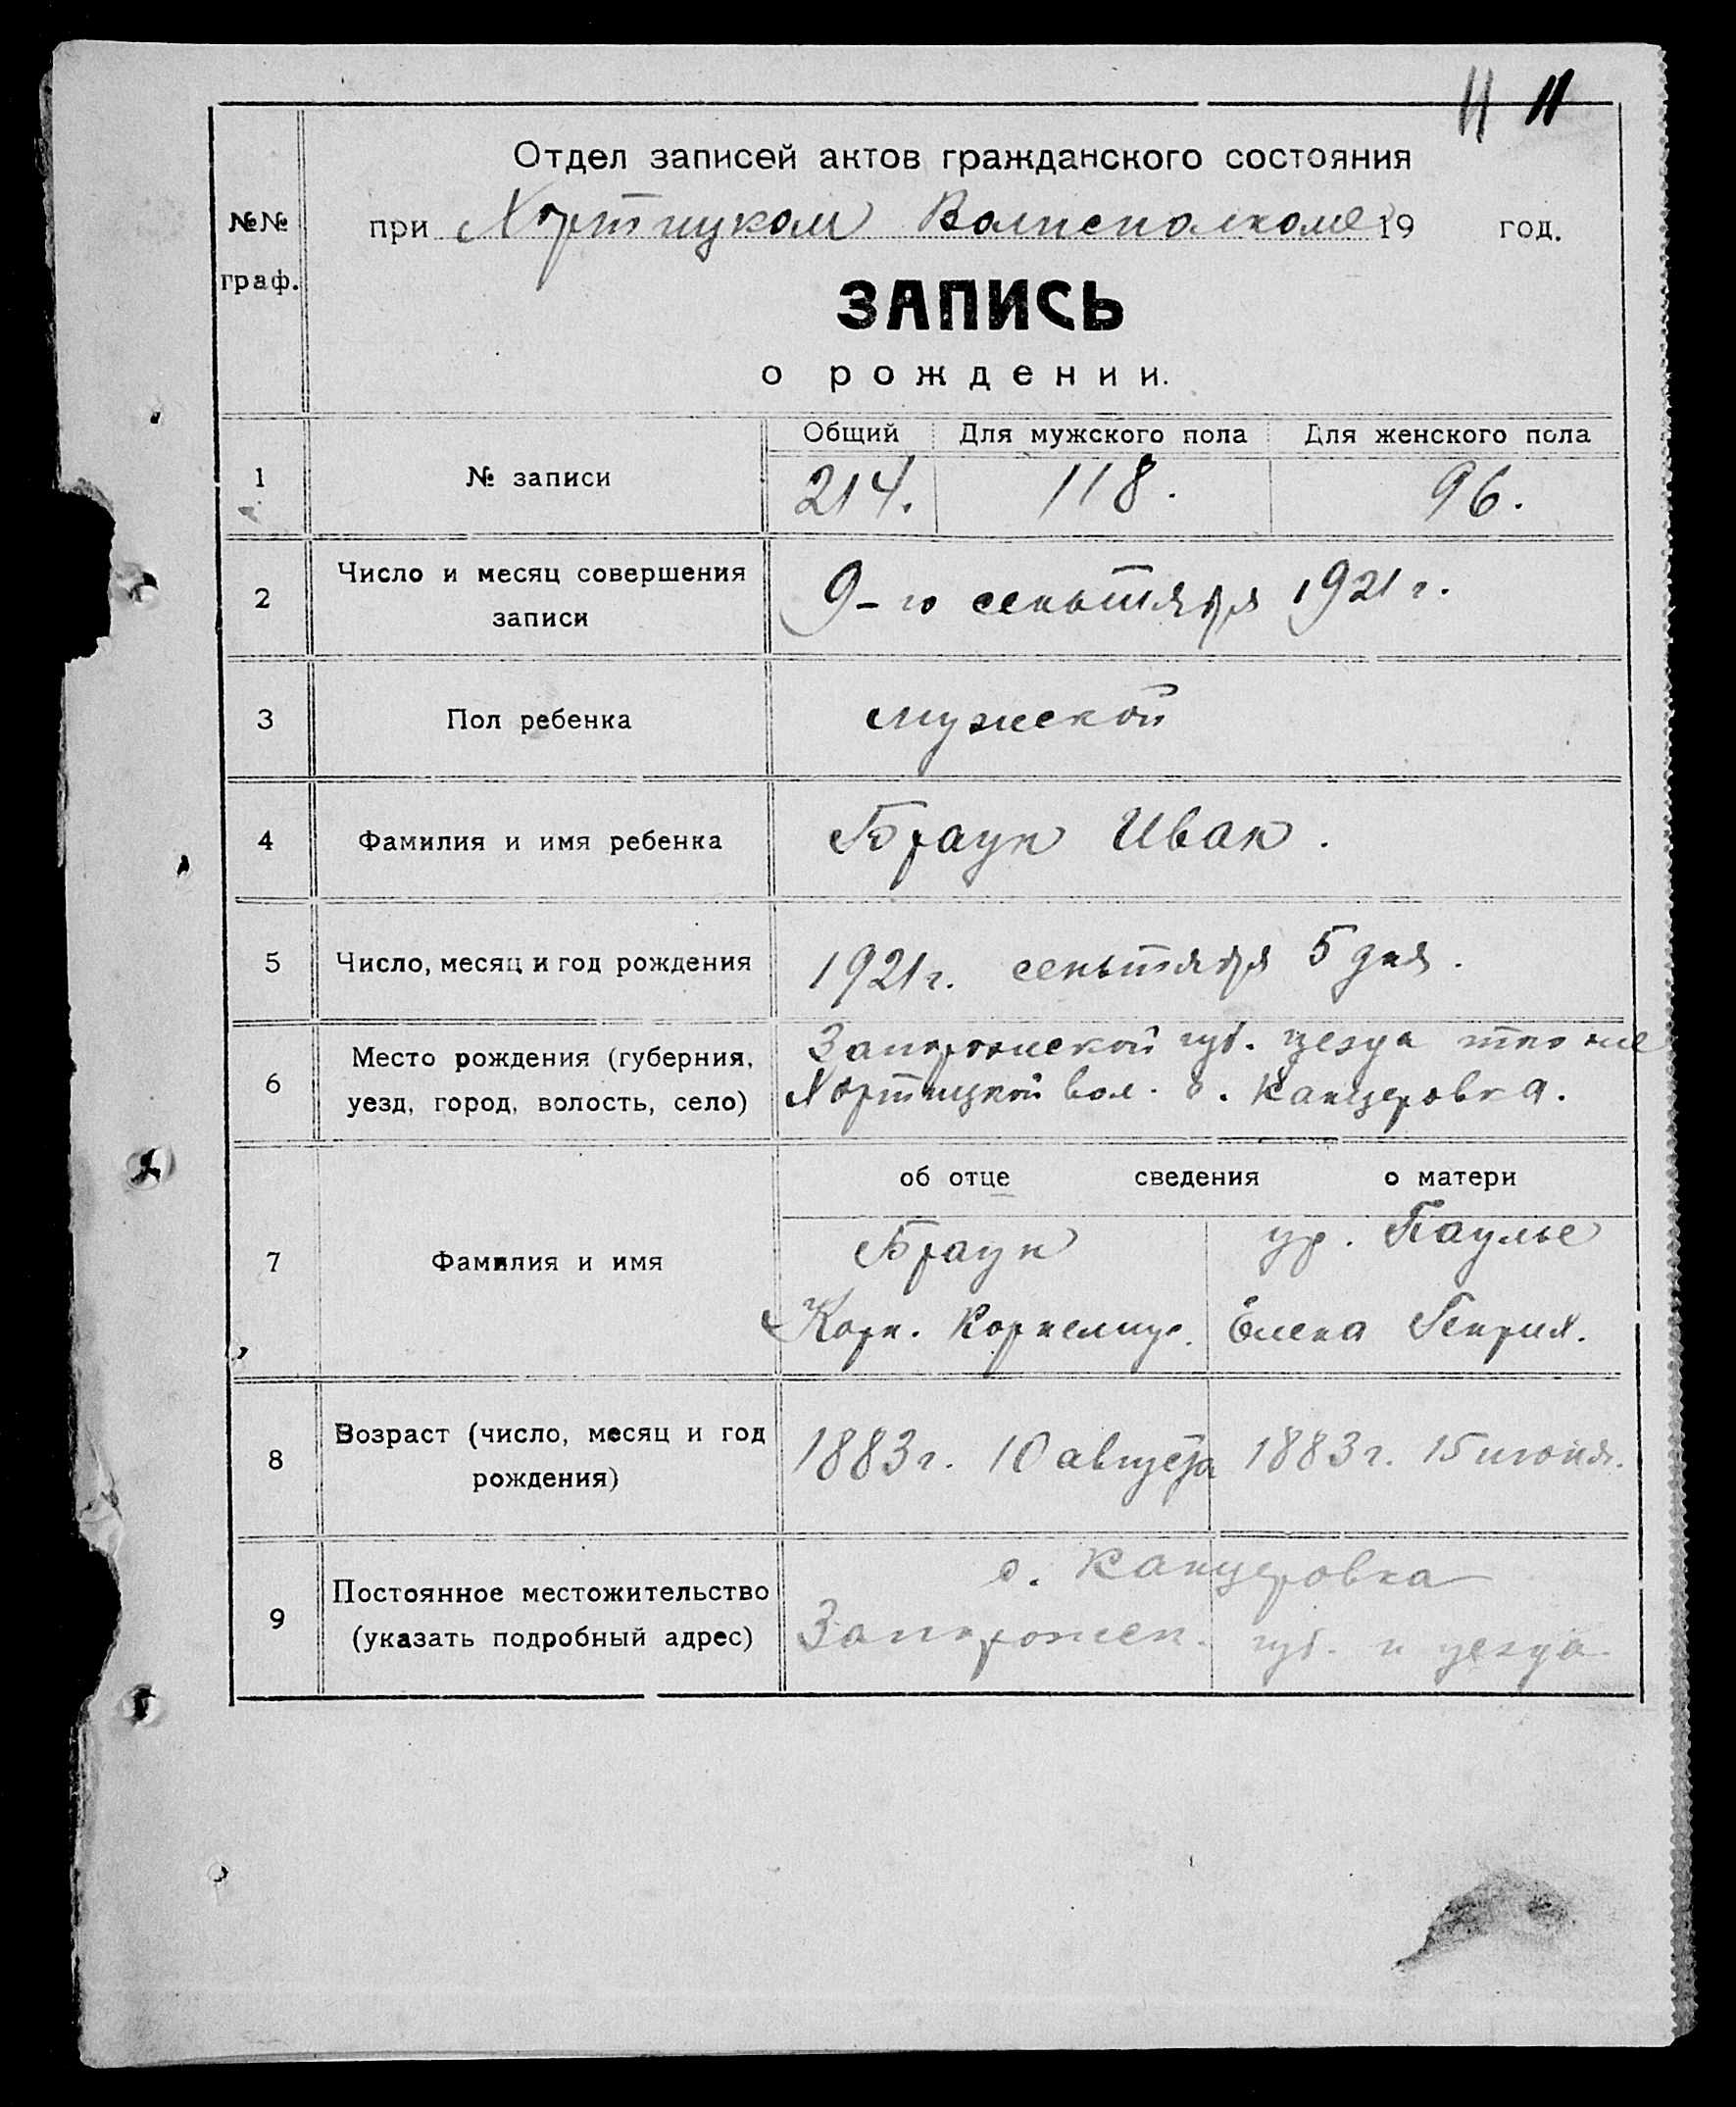 11 11
Отдел записей актов гражданского состояния
№№ граф.
при Хортицком Волисполкоме 19 год.
ЗАПИСЬ
о рождении.
Общий Для мужского пола Для женского пола
1 № записи 214. 118. 96.
2 Число и месяц совершения записи
9-го сеньтября 1921 г.
3 Пол ребенка мужской
4 Фамилия и имя ребенка Браун Иван.
5 Число, месяц и год рождения 1921 г. сеньтября 5 дня.
6 Место рождения (губерния, уезд, город, волость, село)
Запорожской губ. уезда того же
Хортицкой вол. с. Канцеровка.
об отце сведения о матери
7 Фамилия и имя
Браун ур. Паульс
Корн. Корнелиус. Елена Генрих.
8 Возраст (число, месяц и год рождения)
1883 г. 10 августа 1883 г. 15 июня.
9 Постоянное местожительство (указать подробный адрес)
с. Канцеровка
Запорожск. губ. и уезда.